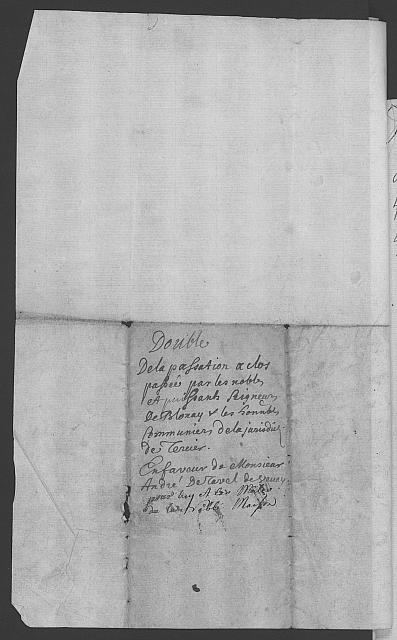 Double
De la passation a clos
passée par les nobles
et puissants Seigneurs
De Blonay & les honnbles
Communiers de la jurisdic
de Tercier.
En faveur de Monsieur
André De Tavel de Vevay
pour luy et les